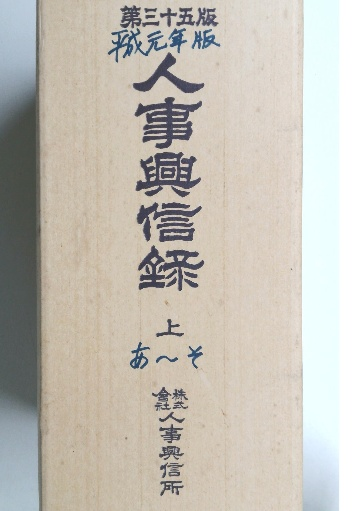 第三十五版
平成元年版
人事興信録
上
あ～そ
株式会社人事興信所